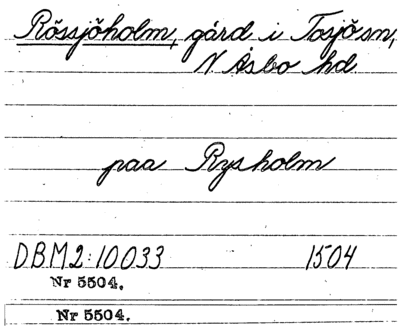 Rössjöholm, gård i Tosjö sn,
N Åsbo hd.
paa Rysholm
DBM2:10033 1504
Nr 5504.
Nr 5504.